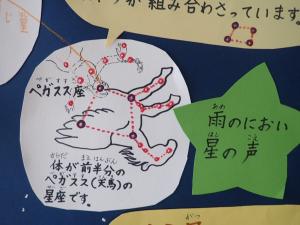 が 組み合わさっています。
ペガスス座
体が前半分の
ペガスス(天馬)の
星座です。
雨のにおい
星の声